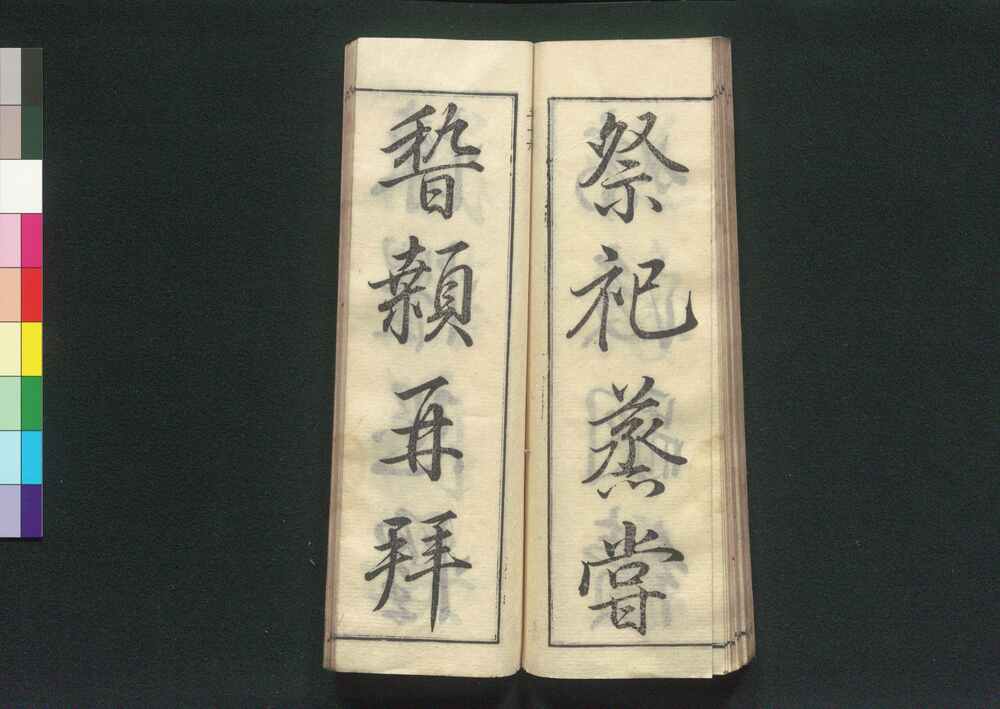 祭祀蒸嘗
稽顙再拜